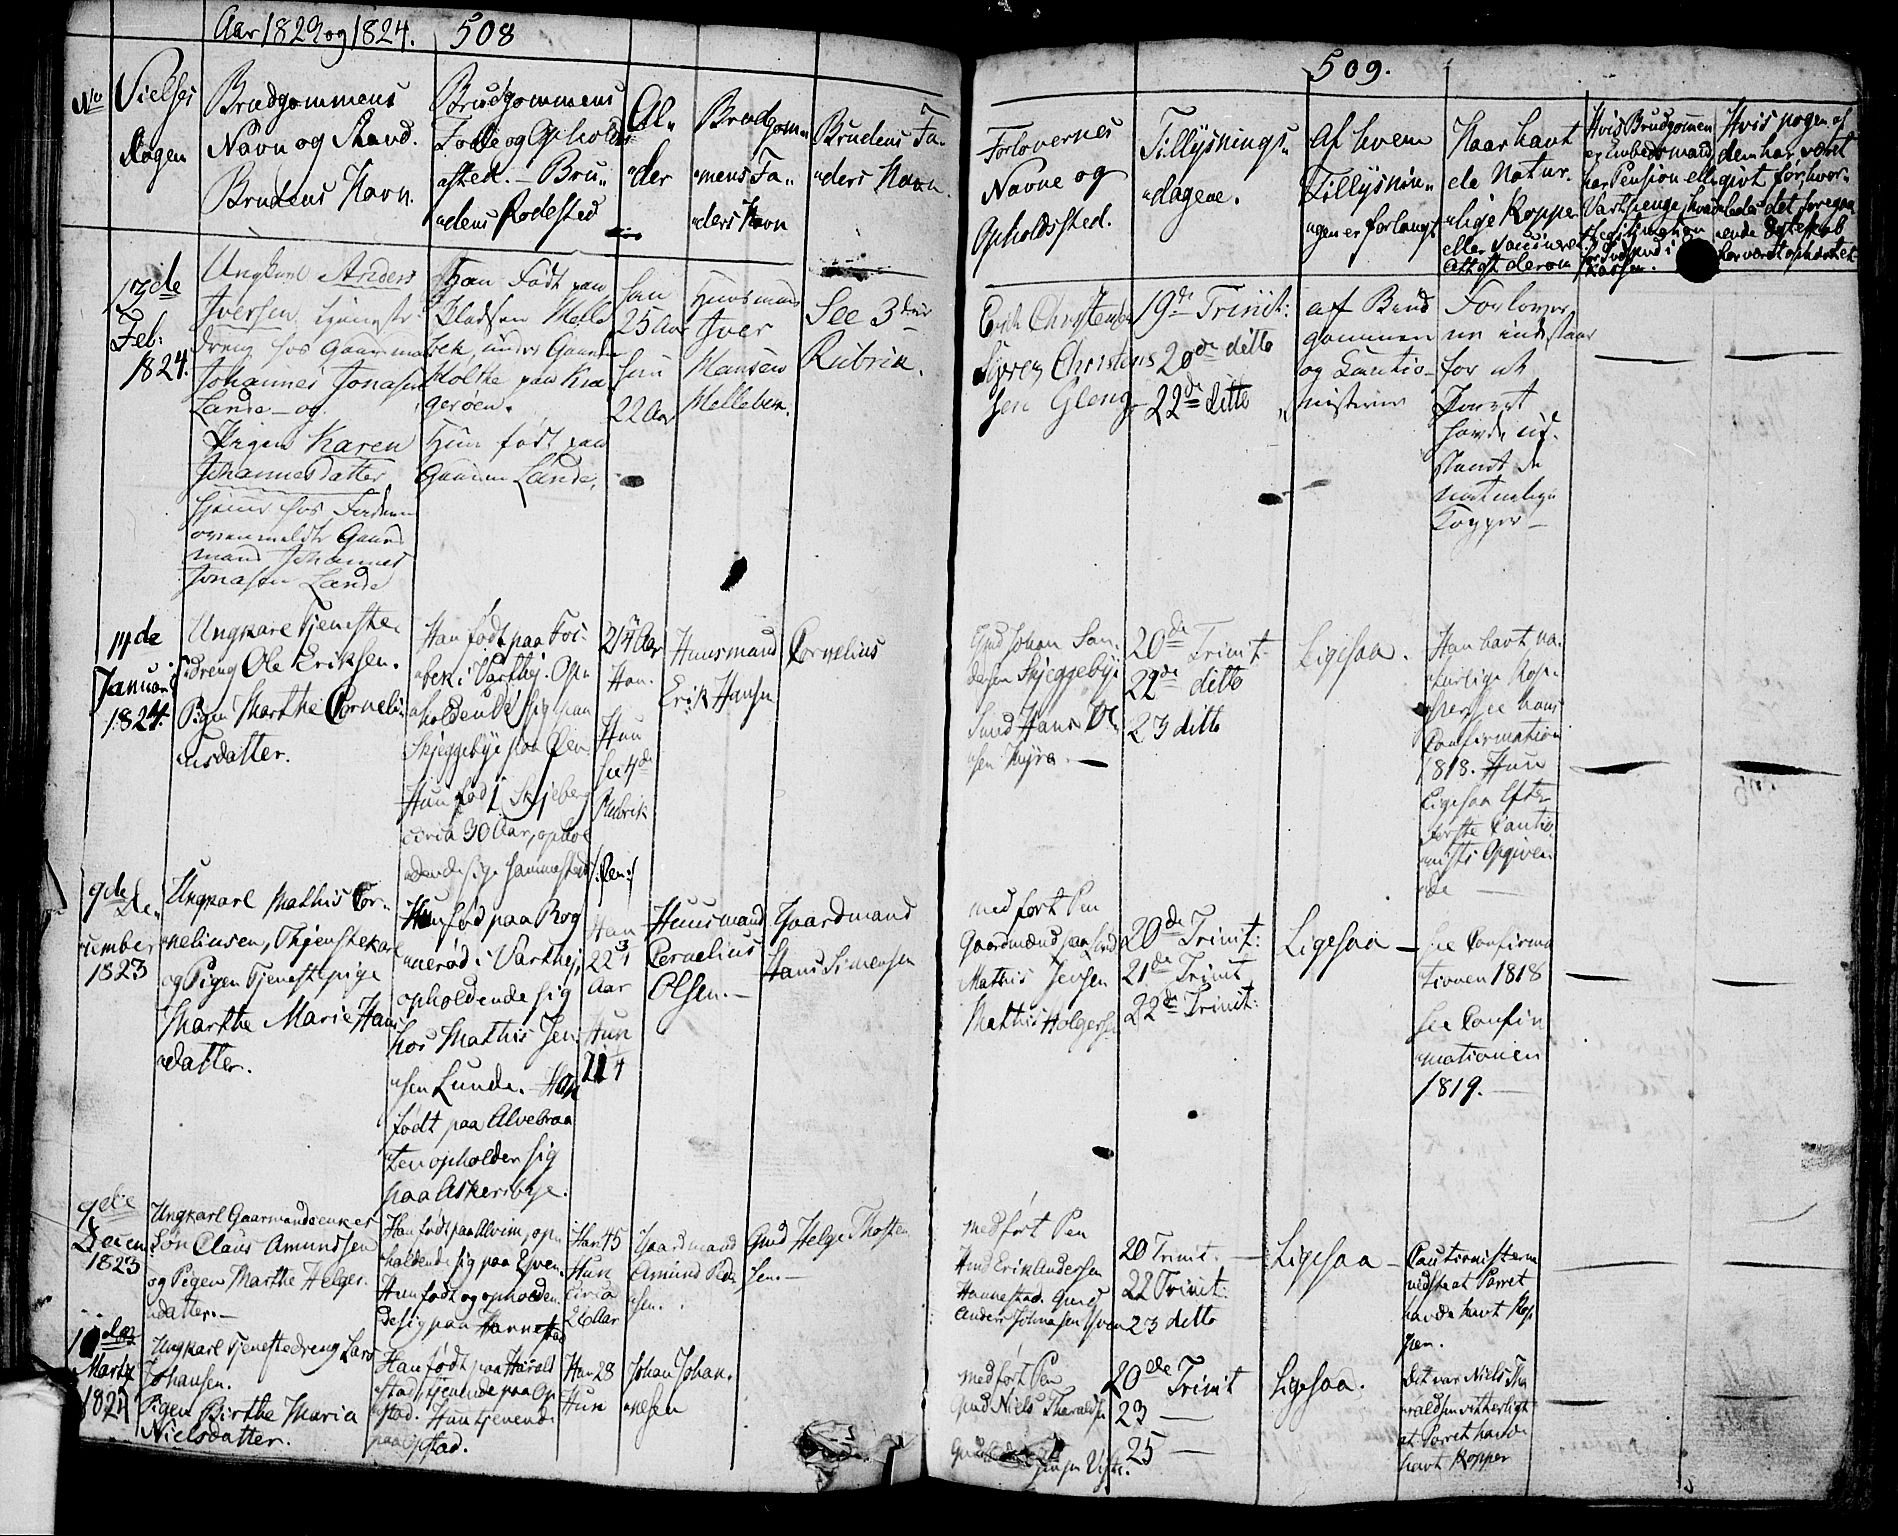 Aar 1823 og 1824. 508
No
Vielses
dagen
Brudgommens
Navn og Stand.
Brudens Navn.
Brudgommens
Føde og Opholds-
sted. - Bru-
dens Fødested
Al-
der
Brudgom-
mens Fa-
ders Navn
Brudens Fa-
ders Navn
13de
Feb:
1824.
Ungkarl Anders
Iversen tjeneste
dreng hos Gaardmand
Johannes Jonasen
Lande - og
Pigen Karen
Johannesdatter
hjemme hos Faderen
ovenmeldte Gaard
mand Johannes
Jonasen Lande
Han født paa
Pladsen Melle
bek, under Gaarden
Holthe paa Kra
gerøen.
Hun født paa
Gaarden Lande.
han
25 Aar
hun
22 Aar
Huusmand
Iver
Hansen
Mellebek.
See 3die
Rubrik.
14de
Januari
1824.
Ungkarl Tjeneste
dreng Ole Eriksen.
Pigen Marthe Corneli-
usdatter.
Han født paa Fos-
bek i Varthej. Op-
holdende sig paa
Skjeggebye paa Øen
Hun fød i Skjeberg
circa 30 Aar, ophol
dende sig sammesteds
Aar
Han.
Hun
see 4de
Rubrik
Huusmand
Erik Hansen
Cornelius
9de De-
cember
1823
Ungkarl Mathis Cor-
neliusen, Thjenstekarl
og Pigen Tjenestpige
Marthe Marie Hans
datter.
Han fød paa Rog
nerød i Varthej,
opholdende sig
hos Mathis Jen-
sen Lunde. - Hun
født paa Alvebraa
ten opholder sig
paa Askersbye.
Han
22
Aar
Hun
Huusmand
Cornelius
Olsen. -
Gaardmand
Hans Simensen
9de
Decem
1823
Ungkarl Gaarmandsenkes
Søn Claus Amundsen
og Pigen Marthe Helges
datter. -
Han født paa Alvim, op-
holdende sig paa Even.
Hun født og ophol den
de sig paa Hannestad
Han 45
Hun
circa
26 Aar
Gaardmand
Amund Peder
sen.
Gmd Helge Thosten
sen. -
Martz
1824
Ungkarl Tjenestedreng Lars
Johansen.
Pigen Birthe Maria
Nielsdatter.
Han født paa Harald
stad tjenende paa Op
stad. Hun tjenende
paa Opstad.
Han 28
Hun
Johan Johan-
nesen
509.
Forlovernes
Navne og
Opholdssted.
Tillysnings-
dagene.
Af hvem
Tillysnin-
gen er forlangt
Naar havt
de Natur-
lige Kopper
eller Vaccineret
Attest derom
Hvis Brudgommen
er Embedsmand
har Pension eller
Hvis nogen af
dem har været
givt før, hvor-
ledes det foregaa
ende Egteskab
har været ophævet
Erich Christensen
Syver Christens
sen Gleng
19de Trinit:
20de ditto
22de ditto
af Brud
gommen
og Cautio-
nisterne
Forlover
ne indstaar
for at
Parret
havde ud-
staaet de
naturlige
Kopper -
Gmd Johan San
dersen Skjeggebye
Smd Hans Ol-
sen Kyra. -
20de Trinit
22de ditto
23 ditto
Ligesaa.
Han havt na-
turlige Kop-
per see hans
Confirmation
1818. Hun
Ligesaa Efter
første Cautio
nists Opgiven
de
med ført Pen
Gaardmænd paa Lunde
Mathis Jensen
Mathis Holgersen
20de Trinit:
21de Trinit
22de Trinit:
Ligesaa -
see Confirma
tionen 1818
see Confir
mationen
1819.
med ført Pen
Gmd Erik Andersen
Hannestad. Gmd
Anders Johnasen Even
20 Trinit.
22 Trinit:
23 ditto
Ligesaa -
Cautionisterne
vedstaa at Parret
havde havt Kop
per.
med ført Pen
Gmd Niels Tharaldsen
20de Trinit
23 -
25 -
Ligesaa.
det var Niels Tha
raldsen vitterligt
at Parret havde
havt Kopper